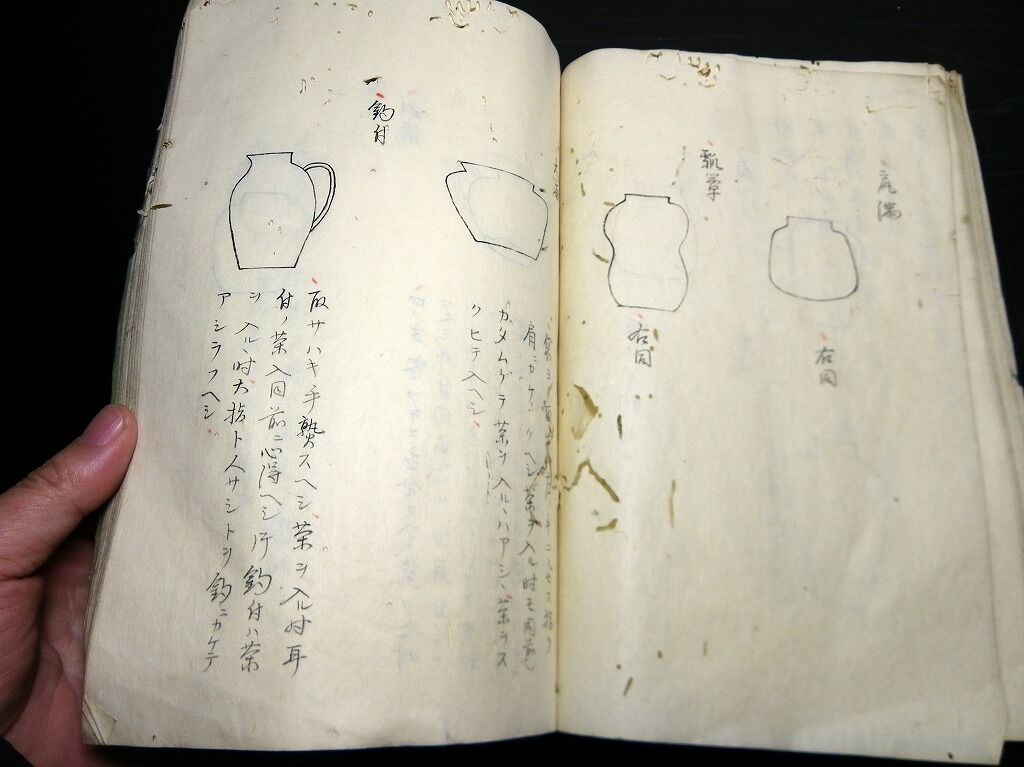 右同
瓢箪
右同
肩ニカケ、クヘシ茶ヲ入ル时モ同前
カタムゲテ茶ヲ入ル、ハアシ、茶ヲス
クヒテ入ヘシ、
一釣付
取サハキ手贄スヘシ茶ヲ入ル时耳
付ノ茶入同前ニ心得ヘシ斤釣付ハ茶
ヲ入ル、时大指ト人サシトヲ釣ニカケテ
アシラフヘシ、